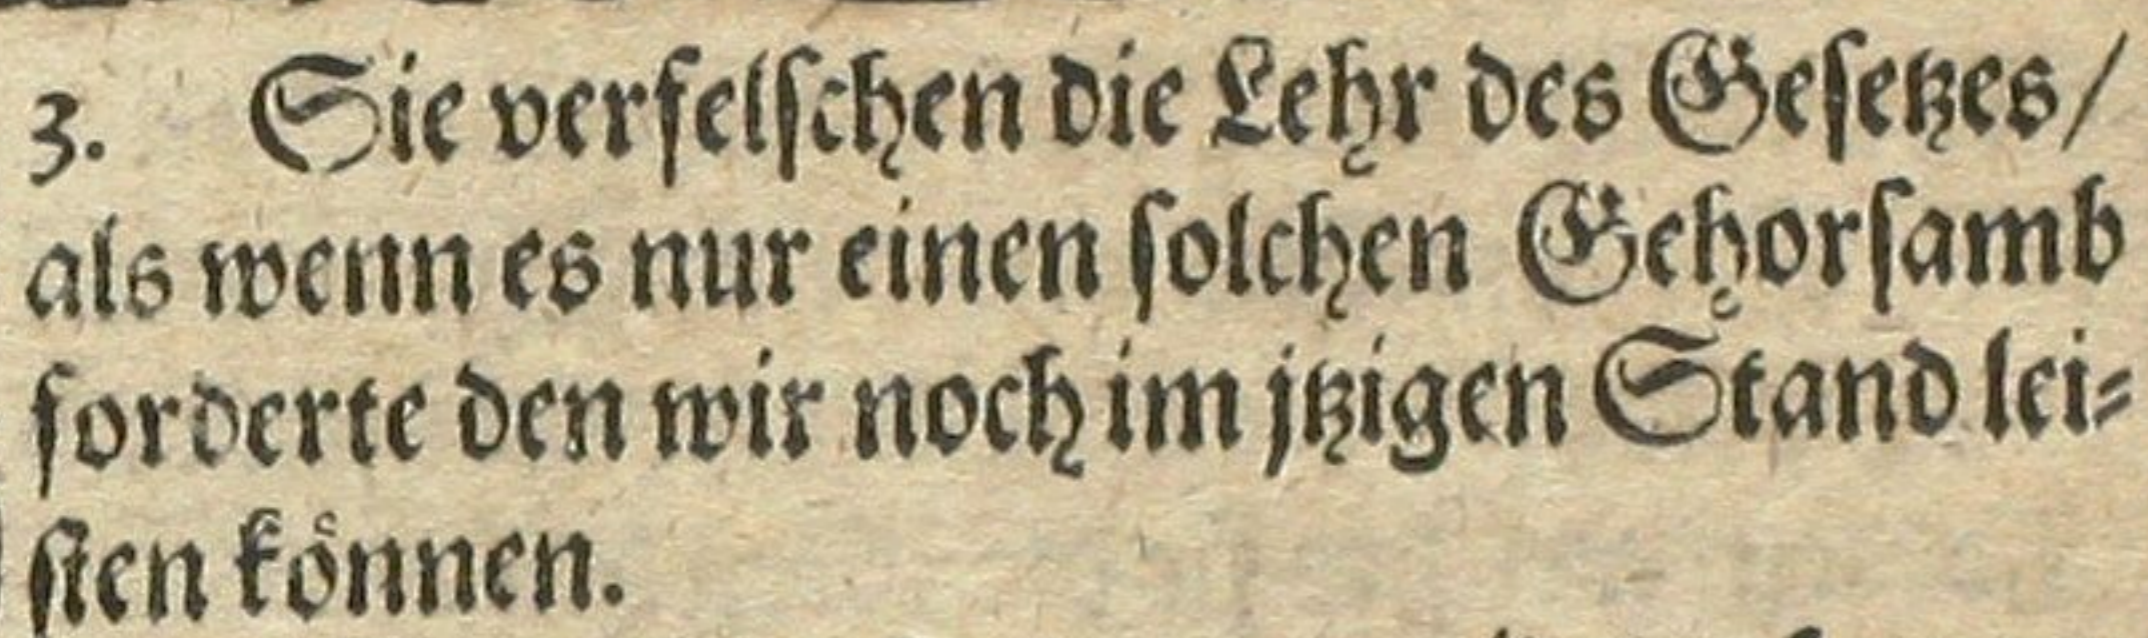 3. Sie verfelſchen die Lehr des Geſetzes/
als wenn es nur einen ſolchen Gehorſamb
forderte den wir noch im jtzigen Stand lei⸗
ſten koͤnnen.